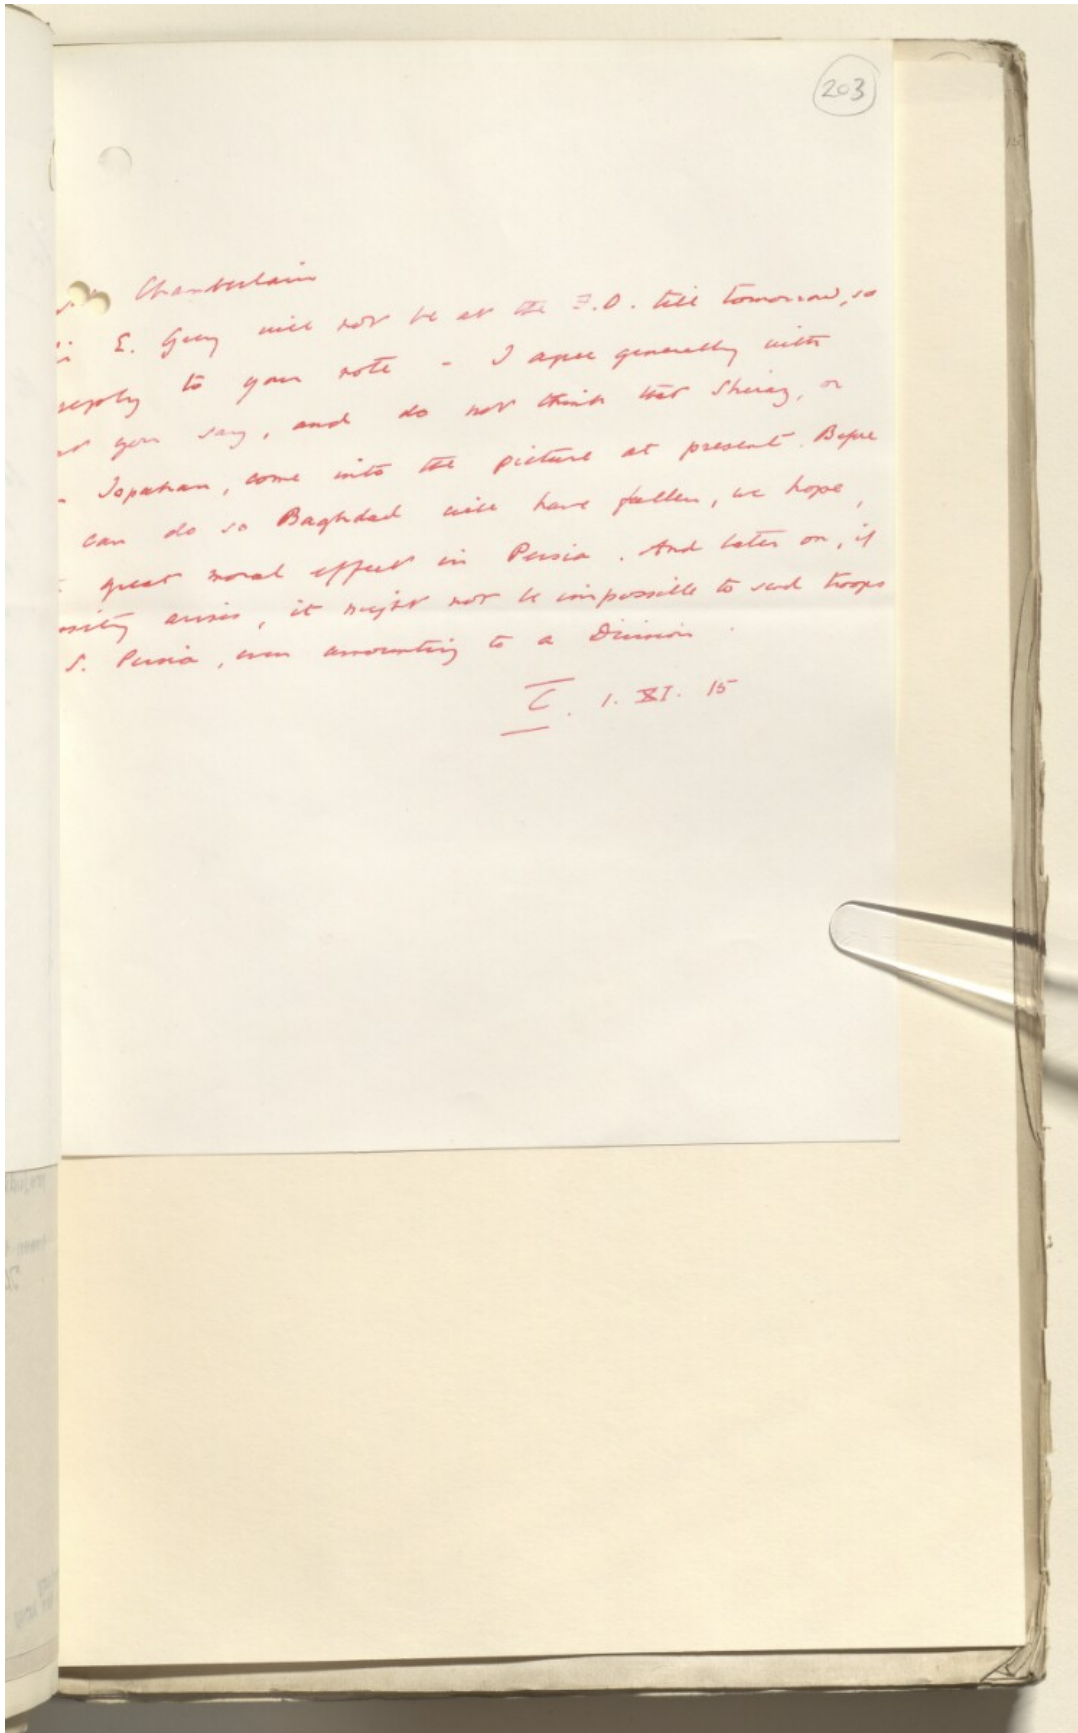 203
Chamberlain
E. Grey will not be at the F.O. till tomorrow, so
reply to your note - I agree generally with
you say, and do not think that Shiraz, or
Ispahan, come into the picture at present. Before
can do so Baghdad will have fallen, we hope,
great moral effect in Persia. And later on, if
arises, it might not be impossible to send troops
S. Persia, even amounting to a Division.
C. 1. XI. 15